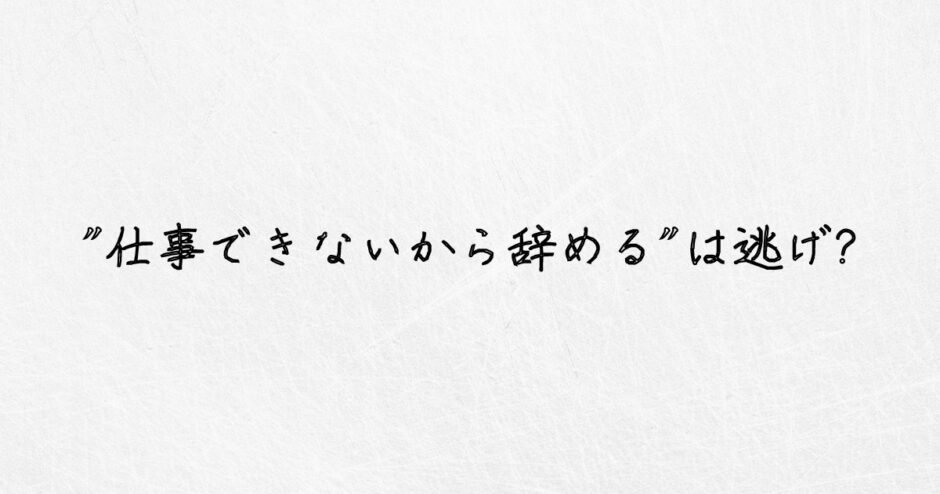 ”仕事できないから辞める”は逃げ?